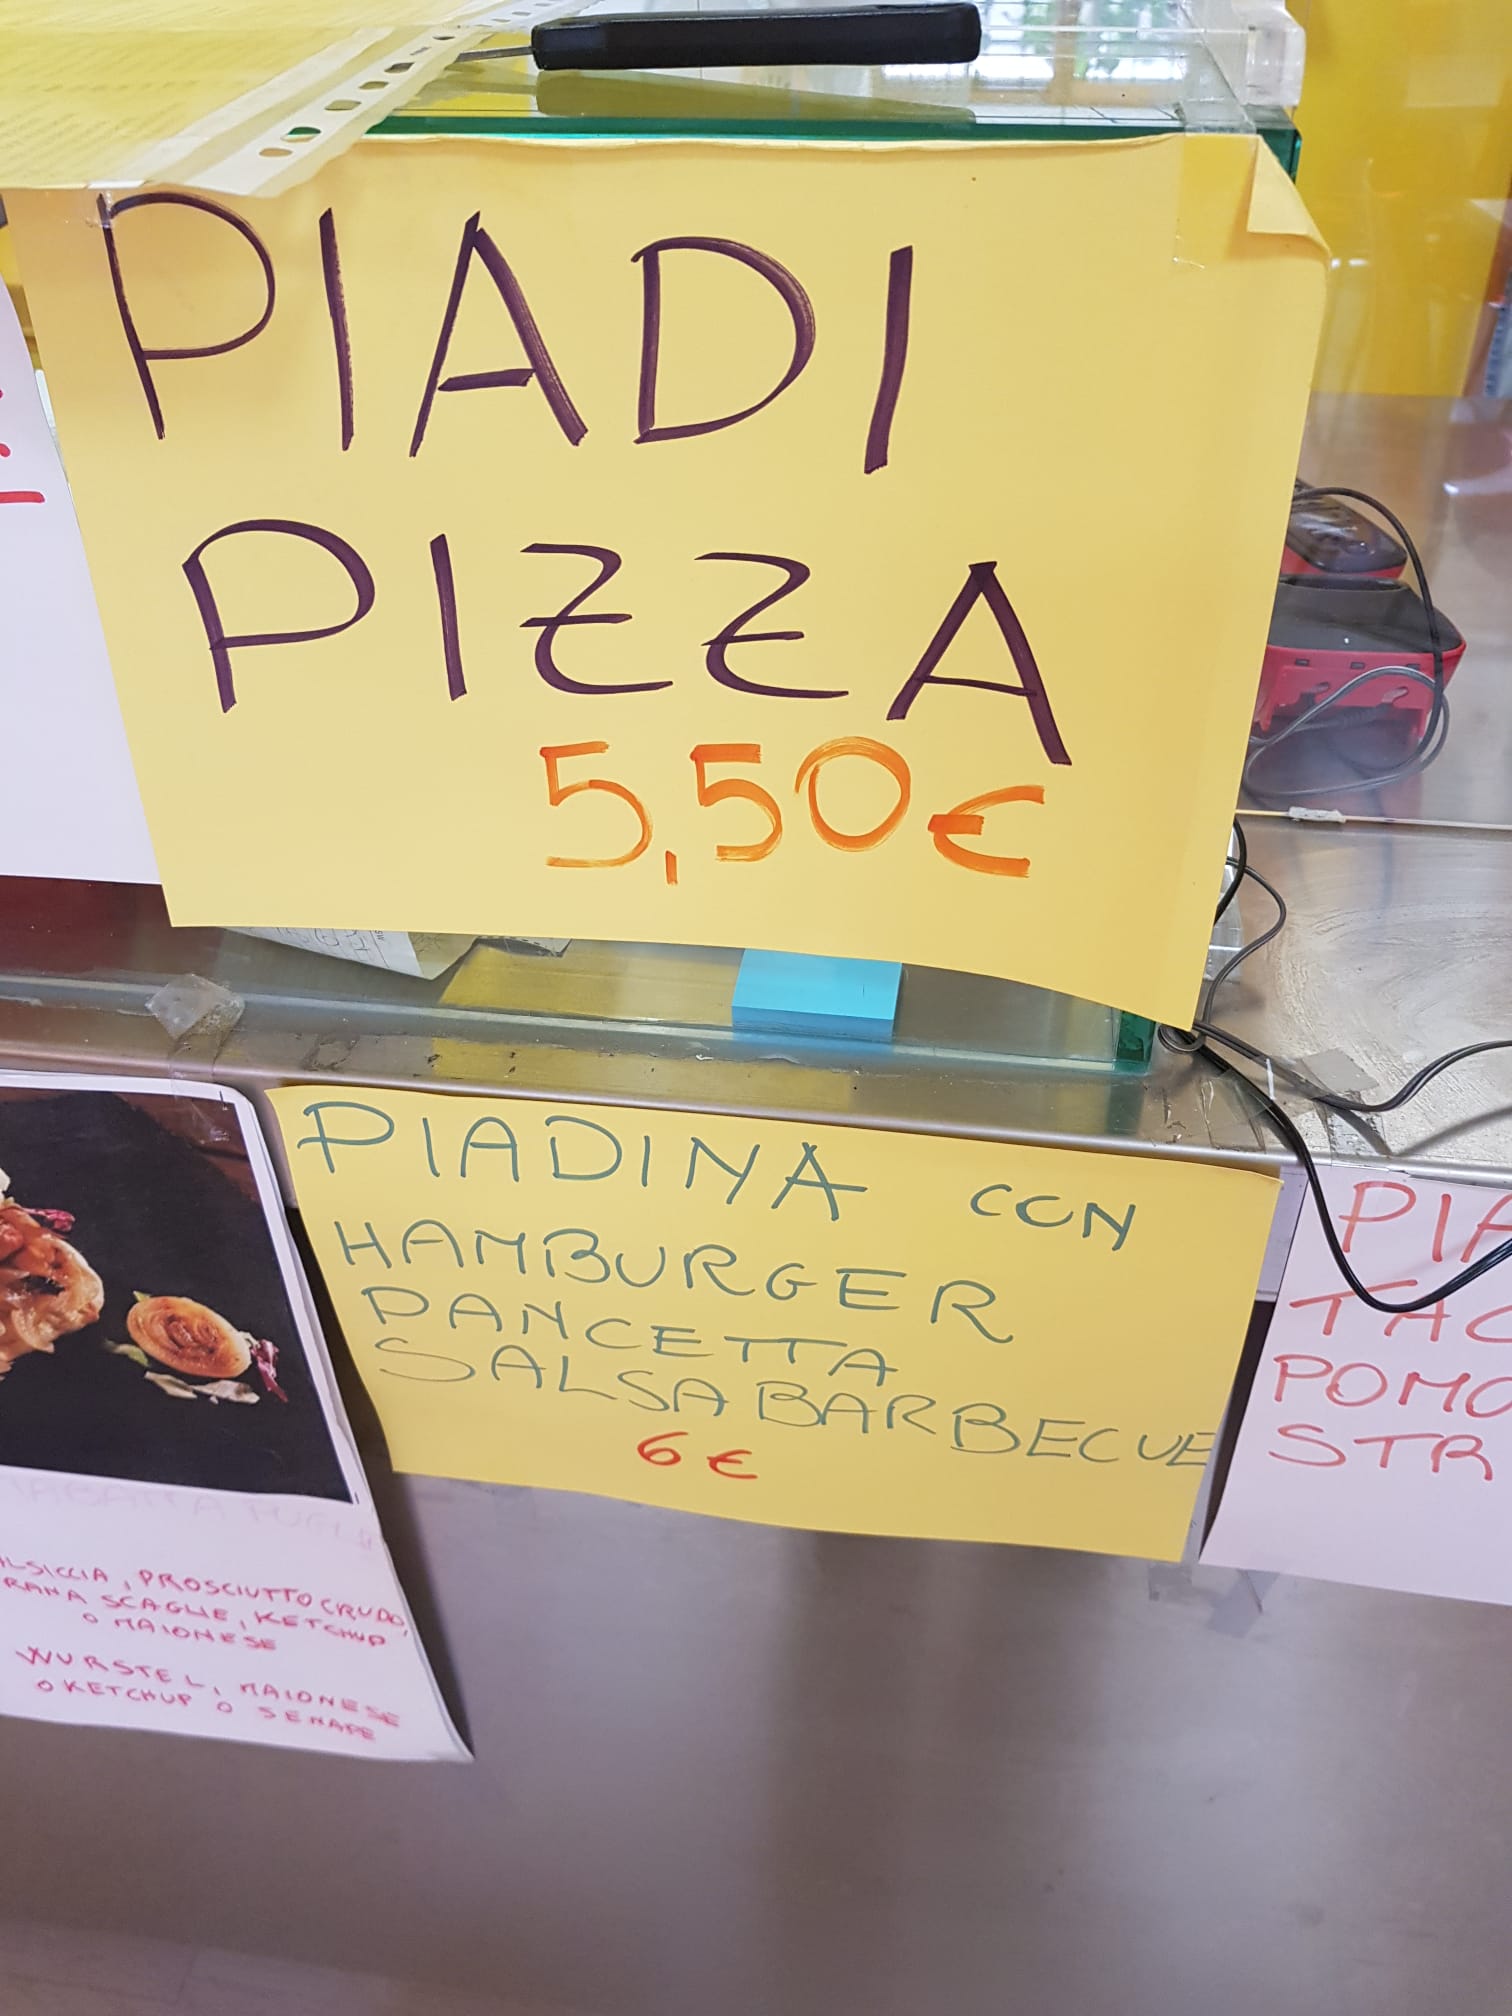 PIADI
PIZZA
5,50€
PIADINA CON
HAMBURGER
PANCETTA
SALSA BARBECUE
6€
PIA
TAC
POMO
STR
LSICCIA, PROSCIUTTO CRUDO,
RANA SCAGLIE, KETCHUP
O MAIONESE
WURSTEL, MAIONESE
O KETCHUP O SENAPE